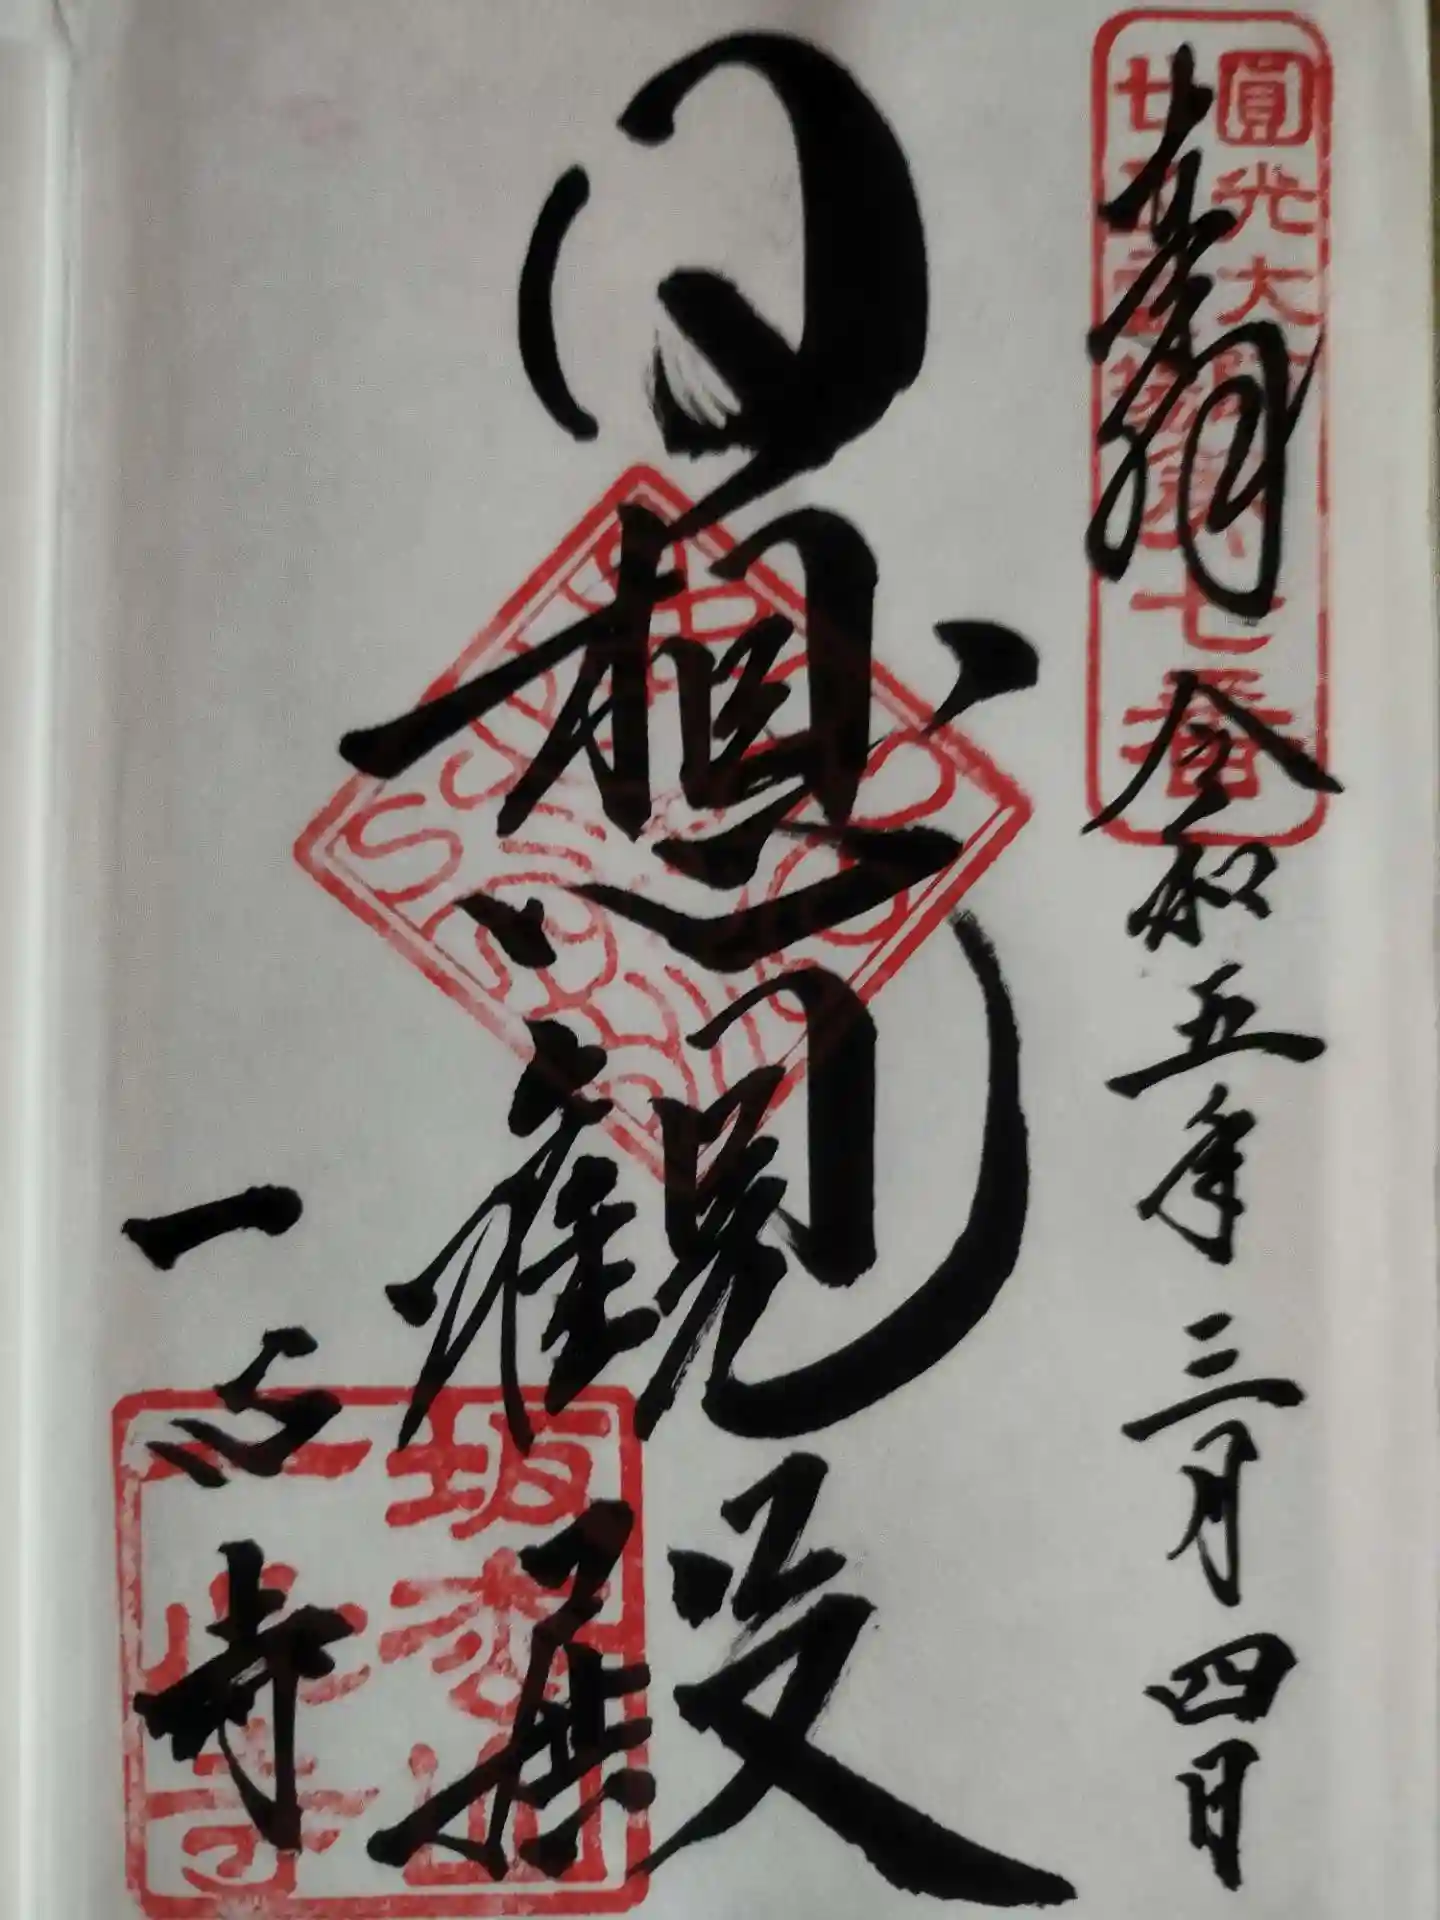 奉拝
令和五年三月四日
圓光大師
廿五霊場第七番
日想観殿
一心寺
坂松山
一心寺